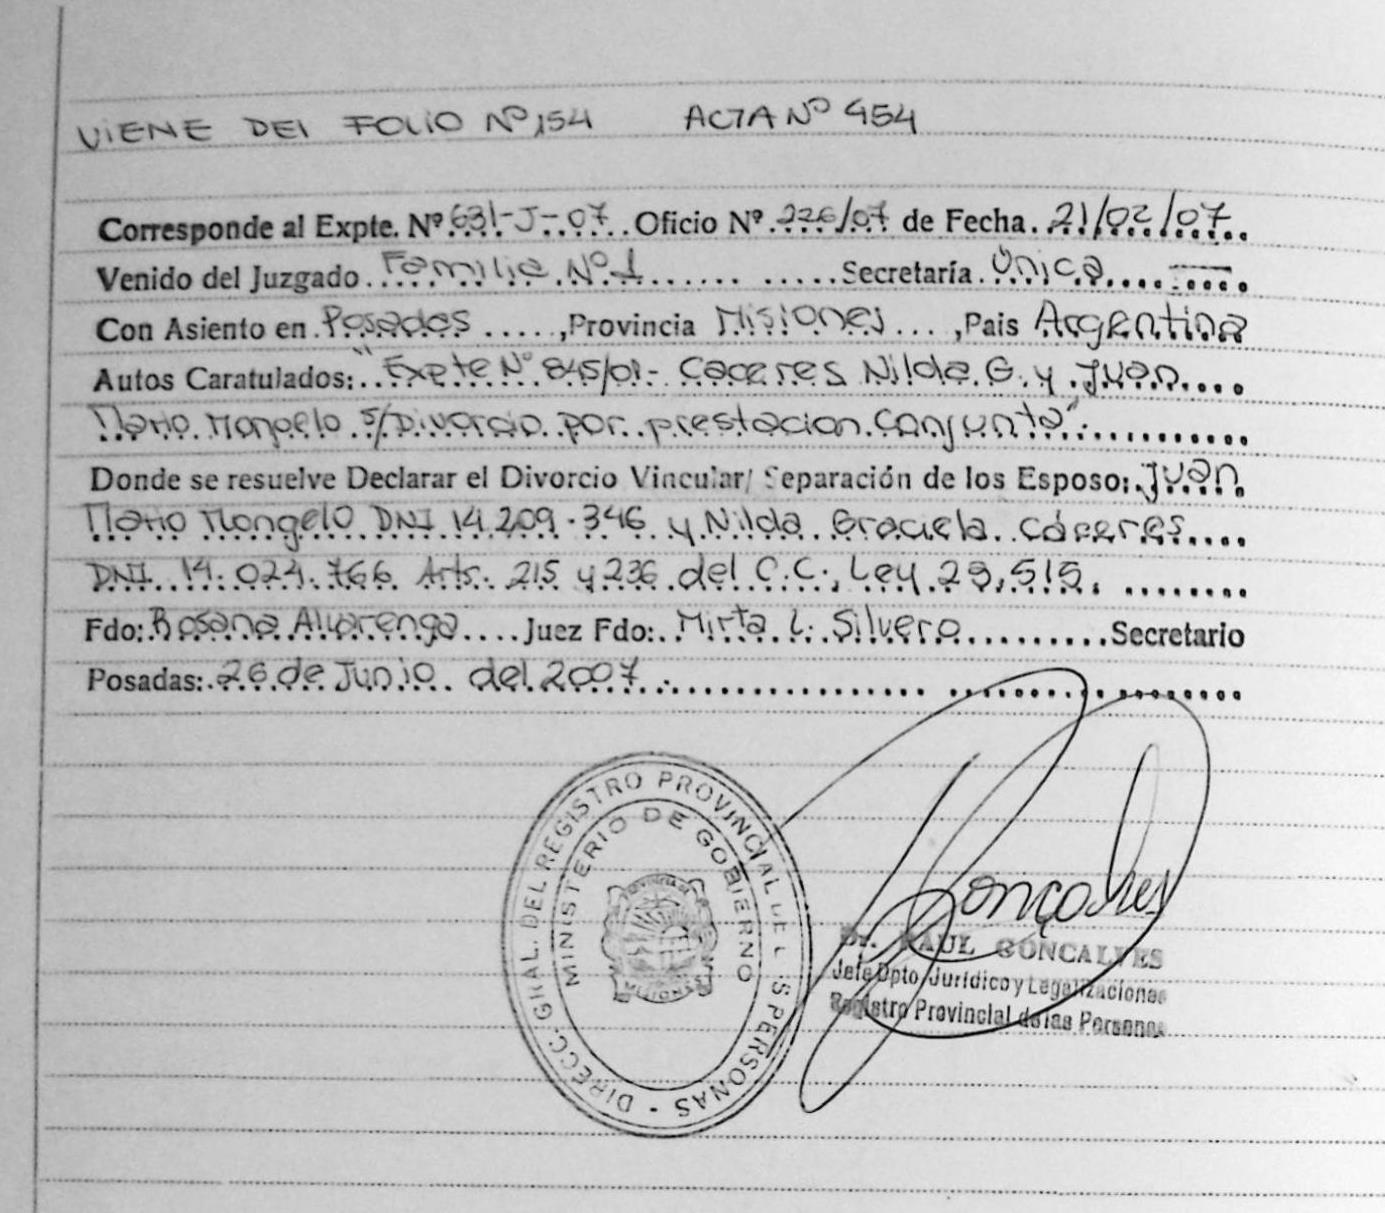 VIENE DEL FOLIO Nº 154 ACTA Nº 454
Corresponde al Expte. Nº 631-J-07 Oficio Nº 226/07 de Fecha 21/02/07
Venido del Juzgado Familia Nº 1 Secretaría Única
Con Asiento en Posadas, Provincia Misiones, Pais Argentina
Autos Caratulados: "Expte Nº 845/01- Caceres Nilda G. y Juan
Mario Mongelo S/Divorcio por prestacion conjunta".
Donde se resuelve Declarar el Divorcio Vincular/ Separación de los Esposo: Juan
Mario Mongelo DNI 14.209.346 y Nilda Graciela Cáceres
DNI 14.024.766 Arts. 215 y 236 del C.C., Ley 23.515.
Fdo: Rosana Alvarenga Juez Fdo: Mirta L. Silvero Secretario
Posadas: 26 de Junio del 2007
DIRECC. GRAL. DEL REGISTRO PROVINCIAL DE LAS PERSONAS -
MINISTERIO DE GOBIERNO
PROVINCIA DE
MISIONES
Gonçalves
Dr. RAUL GONCALVES
Jefe Dpto. Jurídico y Legalizaciones
Registro Provincial de las Personas